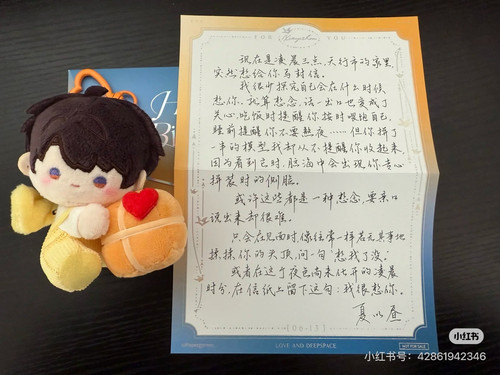 FOR YOU
现在是凌晨三点,天行市的家里,
突然想给你写封信。
我很少探究自己会在什么时候
想你,就算想念,话一出口也变成了
关心。吃饭时提醒你按时喂饱自己,
睡前提醒你不要熬夜……但你拼了
一半的模型我却从不提醒你收起来,
因为看到它时,脑海中会出现你专心
拼装时的侧脸。
或许这些都是一种想念,要亲口
说出来却很难。
只会在见面时,像往常一样若无其事地
揉揉你的头顶,问一句“想我了没”
或者在这个夜色尚未化开的凌晨
时分,在信纸上留下这句:我很想你。
夏以昼
LOVE AND DEEPSPACE
NOT FOR SALE
小红书
小红书号:42861942346